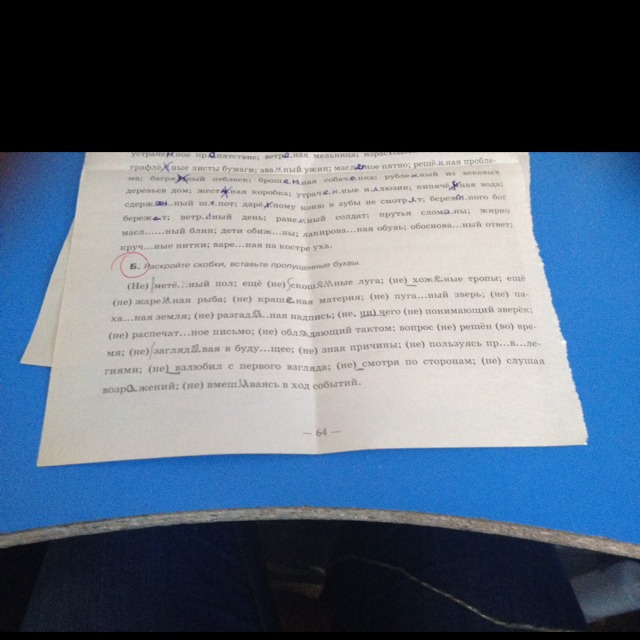 графлё...ные листы бумаги; зва...ый ужин; масл...ное пятно; решё.н.ная пробле-
ма; багря...ный отблеск; брош...ная собач...нка; рубле...ый из вековых
деревьев дом; жест...ная коробка; утрач.е.н.ные и.л.люзии; кипячё...ная вода;
сдерж.ан.ный ш.е.пот; дарё...ному коню в зубы не смотр.я.т; бережё.н.ного бог
береж.ё.т; ветр...ный день; ране...ый солдат; прутья слома.н.ы; жирно
масл......ный блин; дети обиж...ны; лакирова...ная обувь; обоснова...ный ответ;
круч...ные нитки; варе...ная на костре уха.
Б. Раскройте скобки, вставьте пропущенные буквы.
(Не) метё...ный пол; ещё (не) скош...ные луга; (не) хож.е.ные тропы; ещё
(не) жаре...ная рыба; (не) краш.е.ная материя; (не) пуга...ный зверь; (не) па-
ха...ная земля; (не) разгад.а.ная надпись; (не, ни) чего (не) понимающий зверёк;
(не) распечат...ное письмо; (не) обл.а.дающий тактом; вопрос (не) решён (во) вре-
мя; (не) загляд.ы.вая в буду...щее; (не) зная причины; (не) пользуясь пр...в...ле-
гиями; (не) взлюбил с первого взгляда; (не) смотря по сторонам; (не) слушая
возр.а.жений; (не) вмеш.и.ваясь в ход событий.
— 64 —